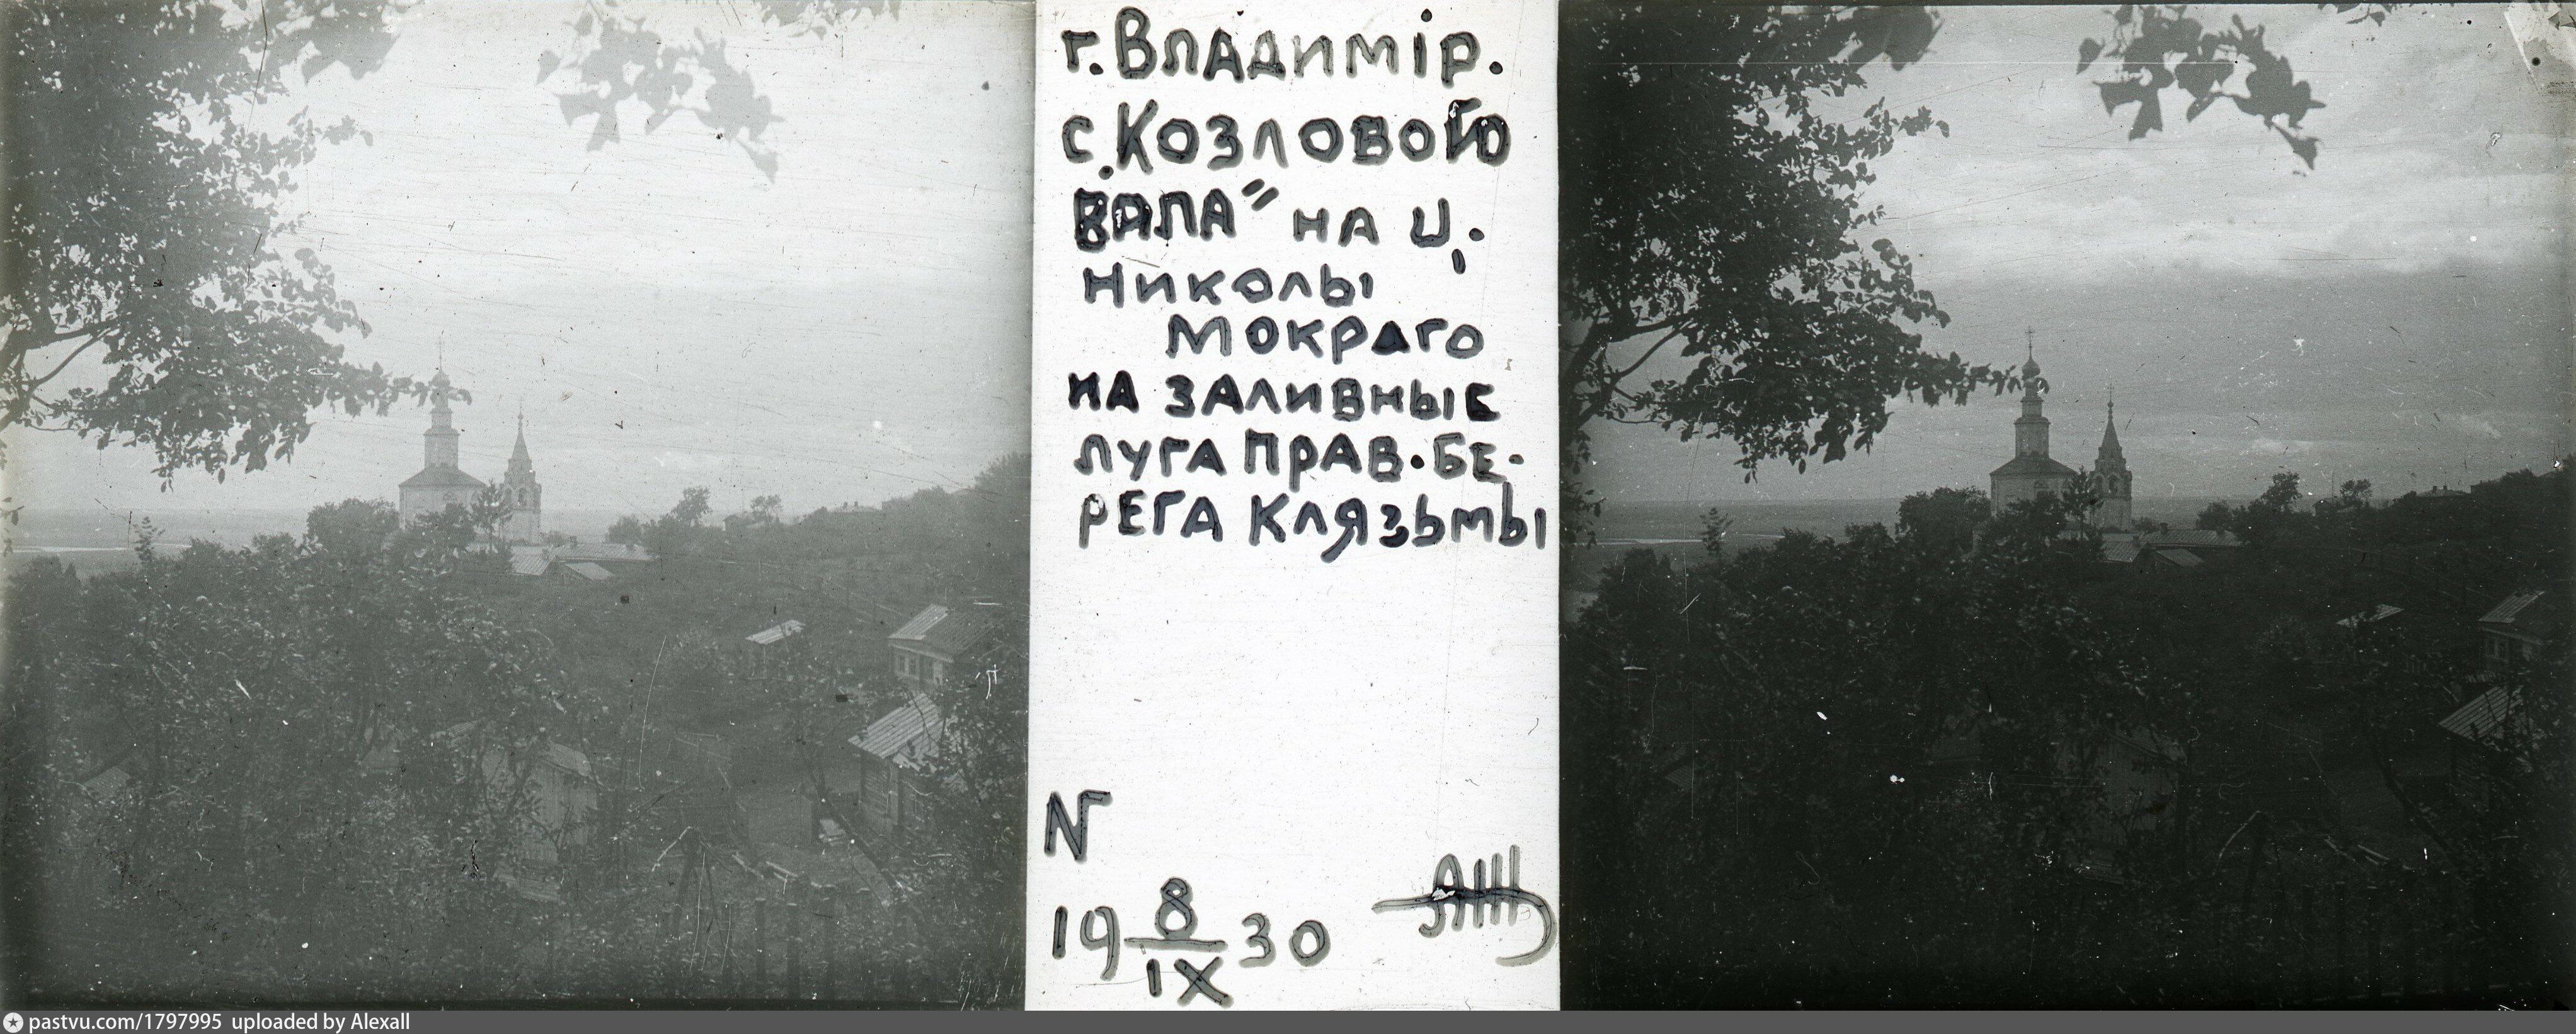 г. Владимiр.
с. Козловой
вала" на ц.
Николы
Мокраго
на заливные
луга прав. бе-
рега Клязьмы
N
19 8/IX 30 АЖ
pastvu.com/1797995 uploaded by Alexall